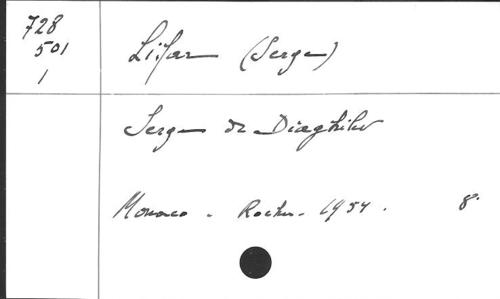 728
501
1
Lifar (Serge)
Serge de Diaghilev
Monaco - Rocher - 1954.
8°